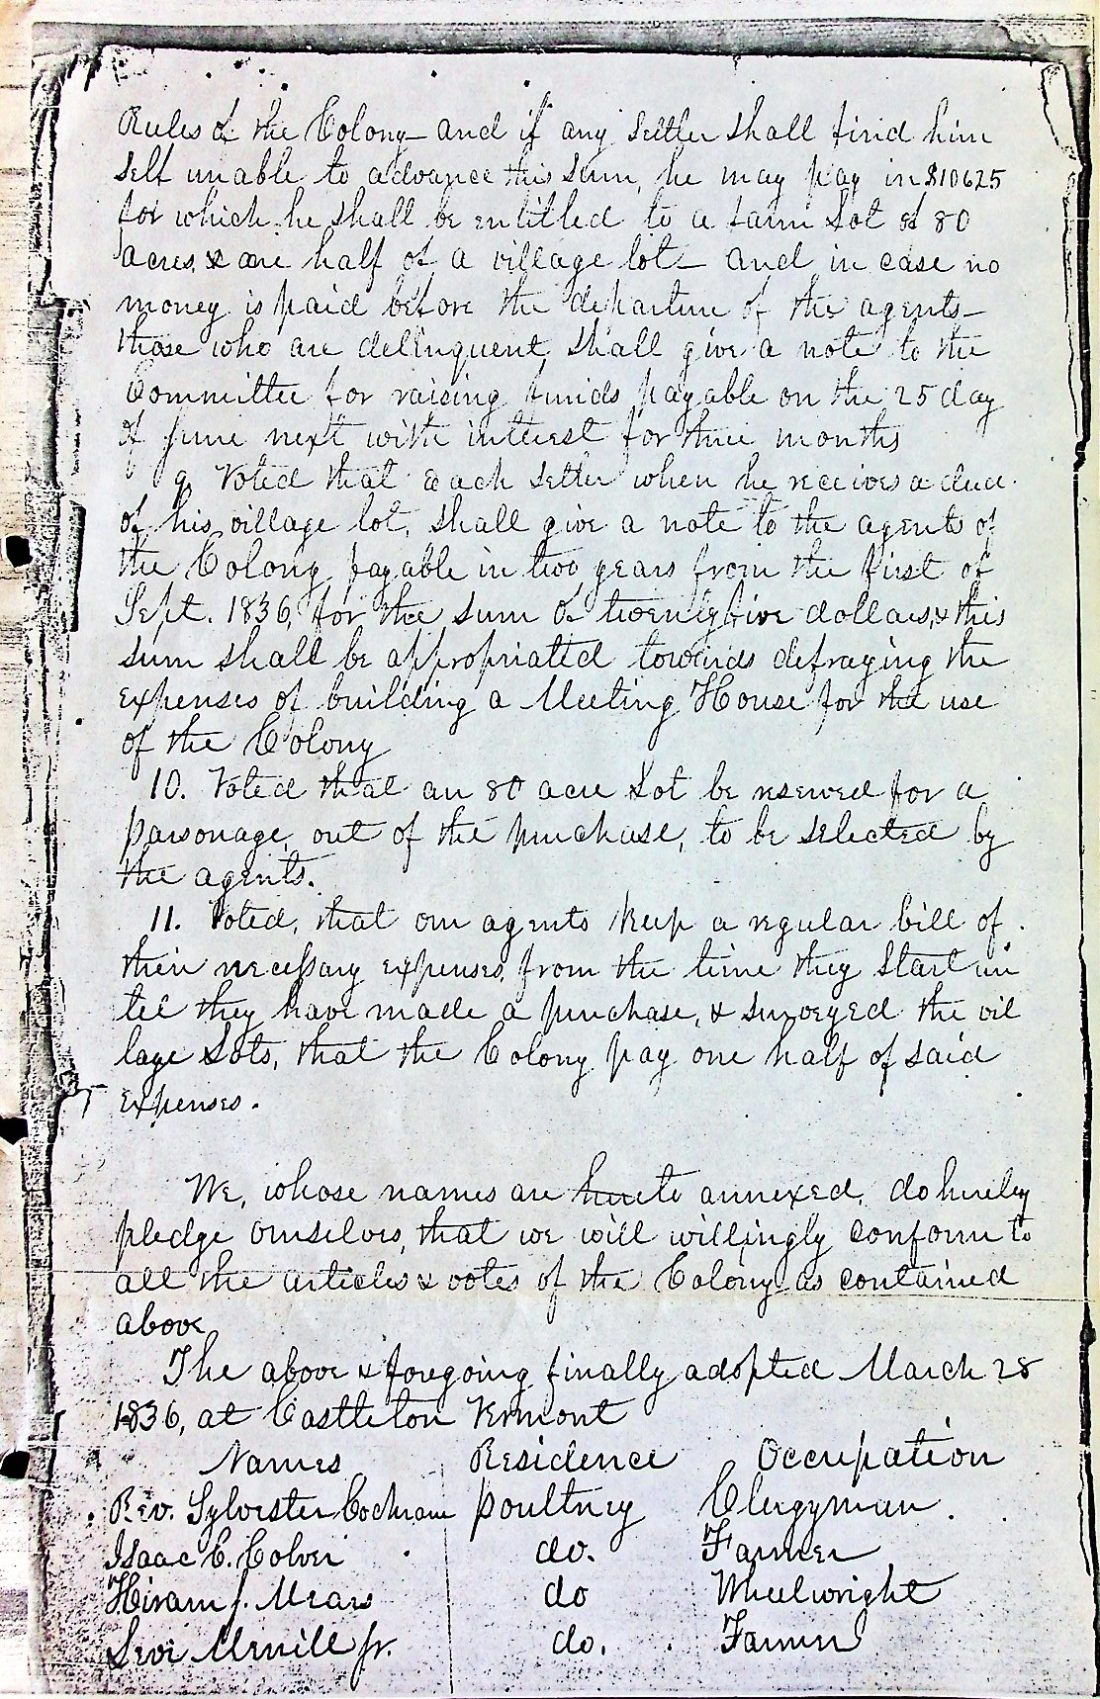 Rules of the Colony - and if any settler shall find him
self unable to advance this sum, he may pay in $106 25
for which he shall be entitled to a farm Lot of 80
acres, & one half of a village lot - and in case no
money is paid before the departure of the agents -
those who are delinquent, shall give a note to the
Committee for raising funds payable on the 25 day
of June next with interest for three months
9. Voted that each setter when he receives a deed
of his village lot, shall give a note to the agents of
the Colony payable in two years from the first of
Sept. 1836, for the sum of twenty five dollars, & this
sum shall be appropriated towards defraying the
expenses of building a Meeting House for the use
of the Colony
10. Voted that an 80 acre Lot be reserved for a
parsonage, out of the purchase, to be selected by
the agents.
11. Voted, that our agents keep a regular bill of
their necessary expenses, from the time they start un
til they have made a purchase, & surveyed the vil
lage Lots, that the Colony pay one half of said
expenses.
We, whose names are hereto annexed, do hereby
pledge ourselves, that we will willingly conform to
all the articles & votes of the Colony as contained
above
The above & foregoing finally adopted March 28
1836, at Castleton Vermont
Names Residence Occupation
Rev. Sylvester Cochram Poultney Clergyman.
Isaac C. Colver do. Farmer
Hiram J. Mears do Wheelwright
Levi Merrill Jr. do. Farmer